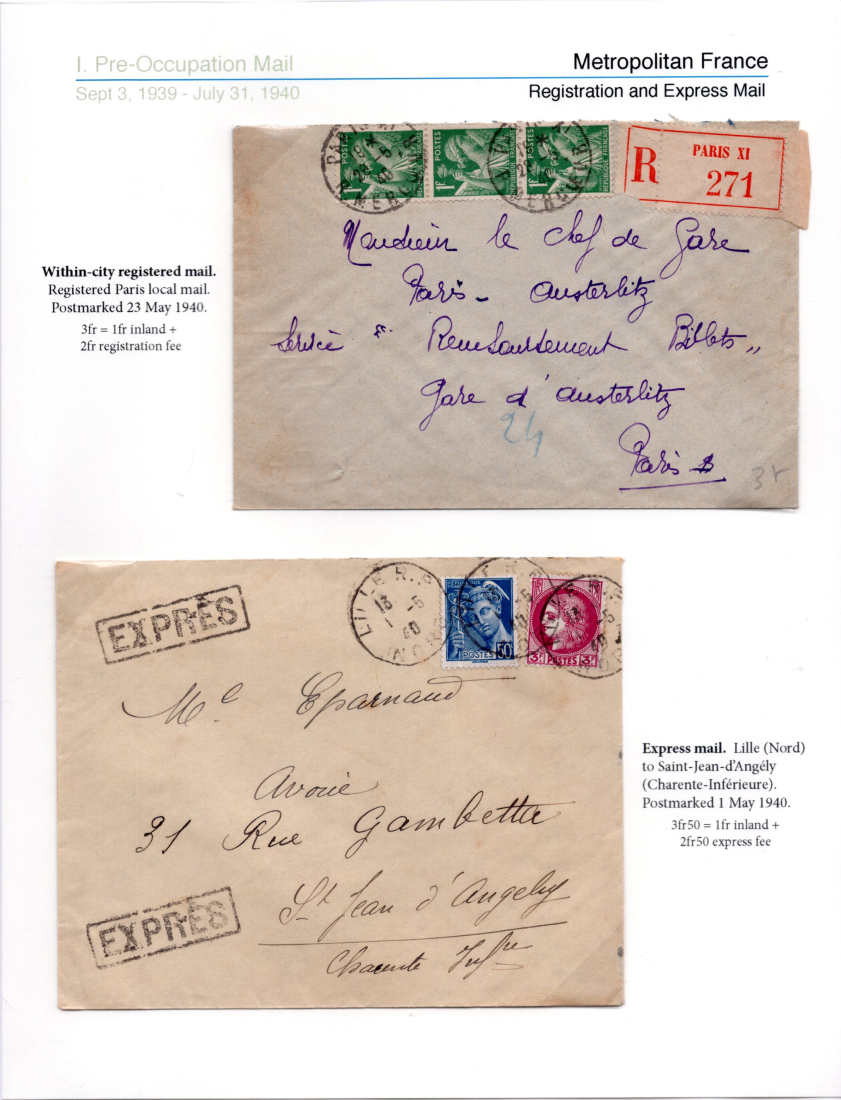 I. Pre-Occupation Mail
Sept 3, 1939 - July 31, 1940
Metropolitan France
Registration and Express Mail
Within-city registered mail.
Registered Paris local mail.
Postmarked 23 May 1940.
3fr = 1fr inland +
2fr registration fee
POSTES 1F RÉPUBLIQUE FRANÇAISE
POSTES 1F RÉPUBLIQUE FRANÇAISE
POSTES 1F RÉPUBLIQUE FRANÇAISE
R PARIS XI
271
Monsieur le Chef de Gare
Paris - Austerlitz
Service " Remboursement Billets "
Gare d'Austerlitz
24
Paris
EXPRÈS
LILLE R.P.
13
1 -5
40
NORD
POSTES 50
3F POSTES 3F
Me Eparnaud
Avoué
31 Rue Gambetta
St Jean d'Angely
Charente Infre
EXPRÈS
Express mail. Lille (Nord)
to Saint-Jean-d'Angély
(Charente-Inférieure).
Postmarked 1 May 1940.
3fr50 = 1fr inland +
2fr50 express fee